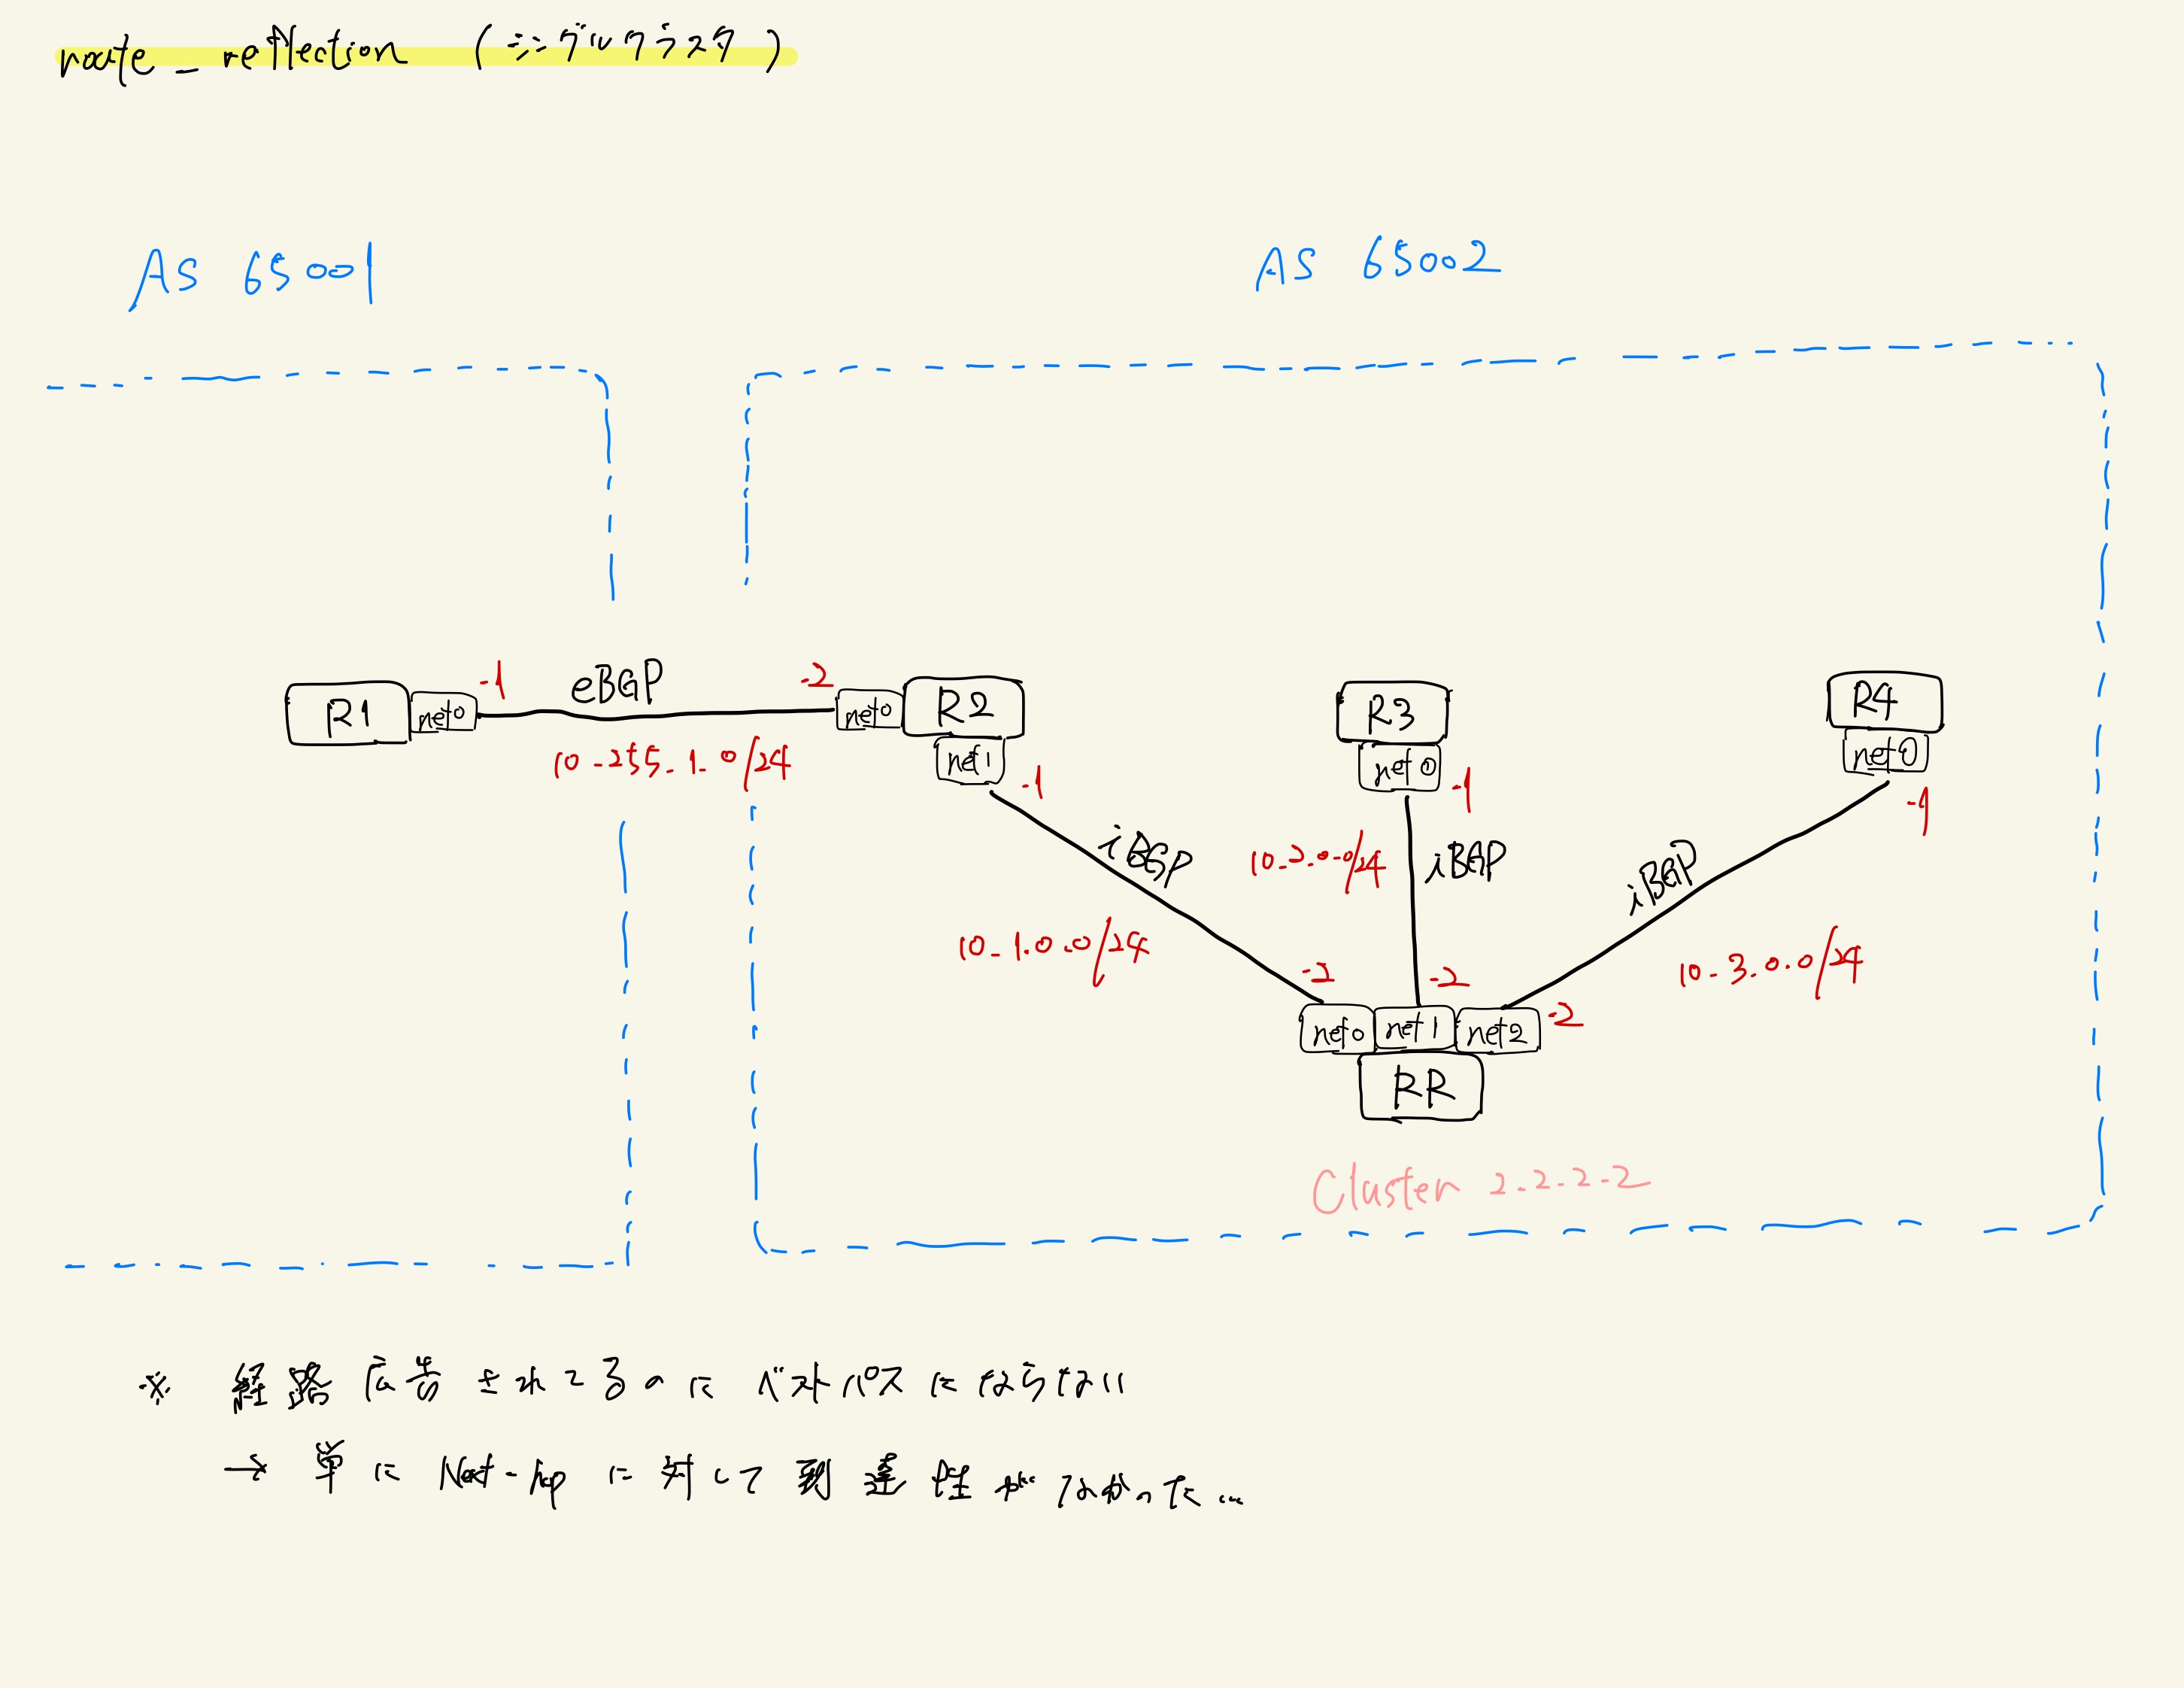 route_reflection (シングルクラスタ)
AS 65001
AS 65002
R1
net0
.1
eBGP
10.255.1.0/24
.2
net0
R2
net1
.1
iBGP
10.1.0.0/24
R3
net0
.1
10.2.0.0/24
iBGP
R4
net0
.1
iBGP
10.3.0.0/24
.2
.2
.2
net0
net1
net2
RR
Cluster 2.2.2.2
※ 経路広告されてるのにベストパスにならない
→ 単に Next-hop に対して到達性がなかった...